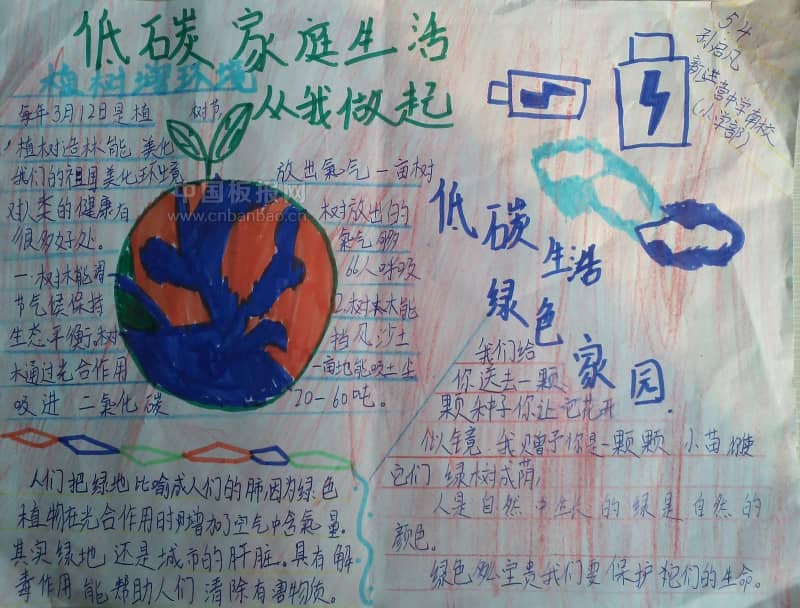 低碳家庭生活
从我做起
植树增环境
5.4
新进营中学南校
(小学部)
每年3月12日是植 树节
植树造林能美化
我们的祖国美化环境
对人类的健康有
很多好处。
一.树木能调
节气候保持
生态平衡.树
木通过光合作用
吸进二氧化碳
放出氧气一亩树
树放出的
氧气够
66人呼吸
2.树木能
挡风沙土
一亩地能吸土尘
20-60吨。
中国板报网
www.cnbanbao.cn
低碳生活
绿色家园
我们给
你送去一颗
颗种子你让它花开
似锦.我赠予你是一颗颗小苗
它们绿树成荫,
人是自然中生长的绿是自然的
颜色。
绿色 宝贵我们要保护 们的生命.
人们把绿地比喻成人们的肺,因为绿色
植物在光合作用时 增加了空气中含氧量.
其实绿地还是城市的肝脏。具有解
毒作用能帮助人们清除有害物质。